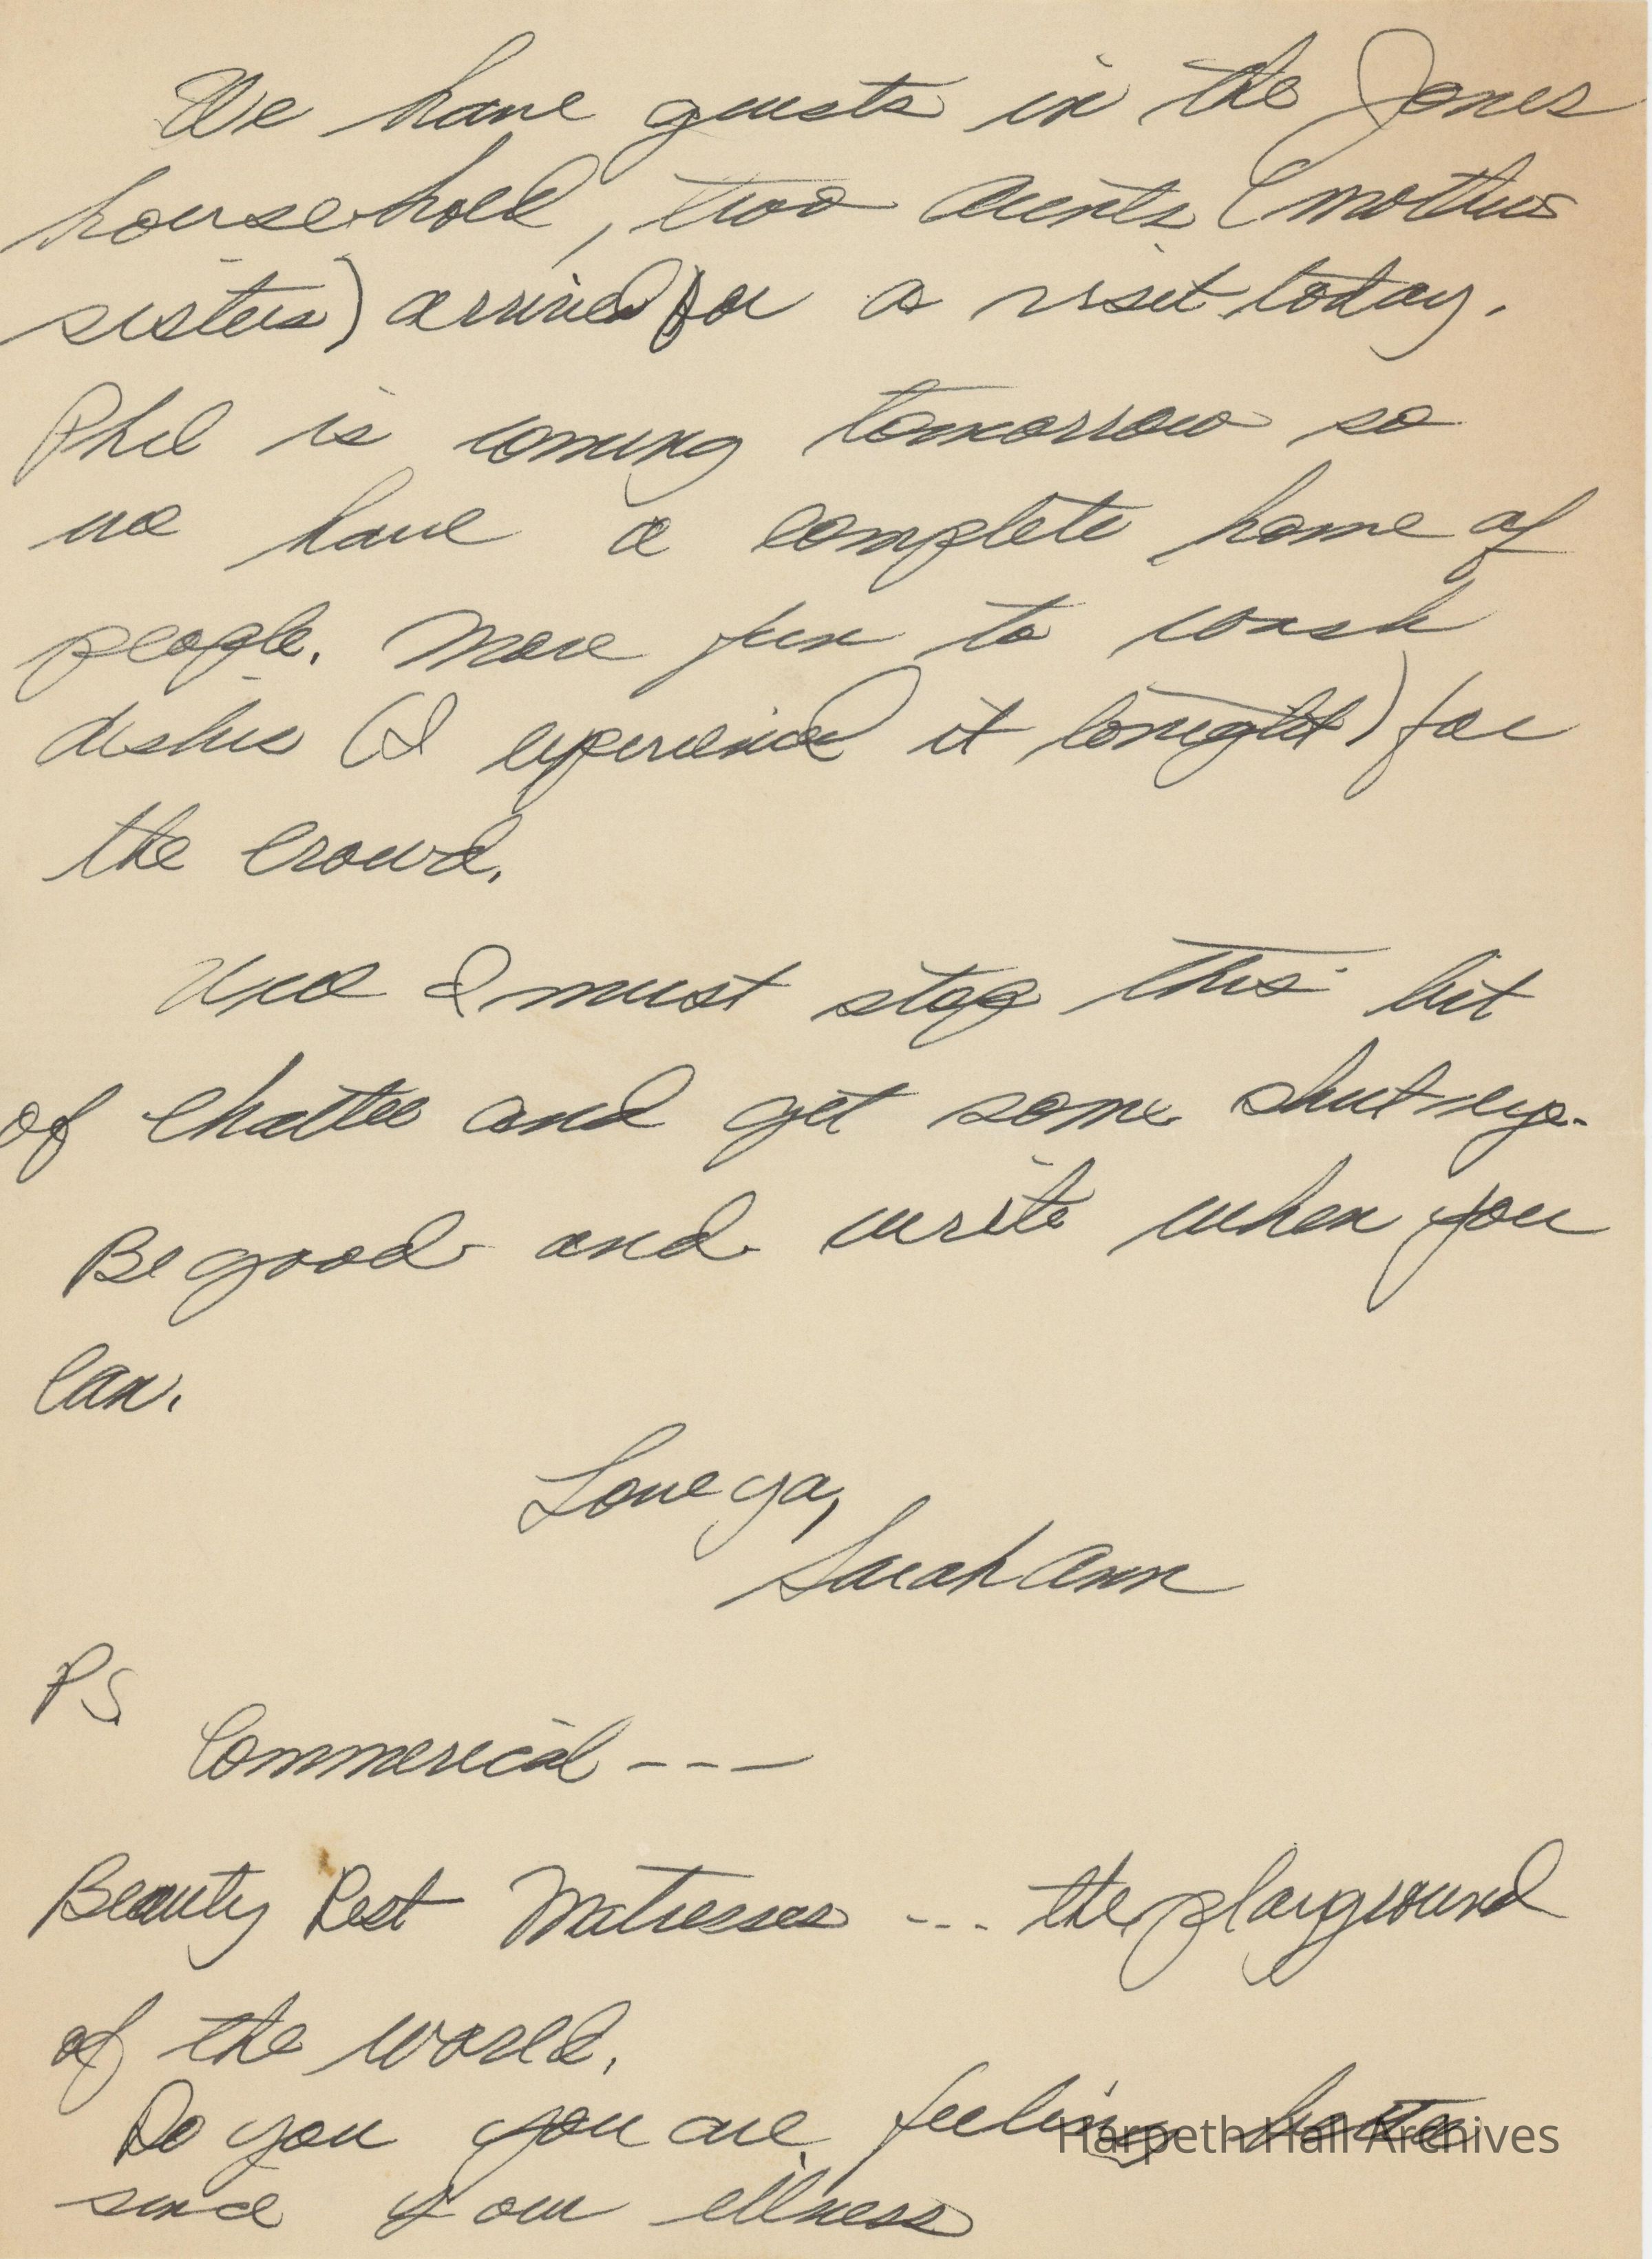 We have guests in the Jones
household, two aunts (mothers
sisters) arrived for a visit today.
Phil is coming tomorrow so
we have a complete home of
people. More fun to wash
dishes (I experienced it tonight) for
the crowd.
I must stop this bit
of chatter and get some shut-eye.
Be good and write when you
can.
Love ya,
Sarah Ann
PS
Commerical ---
Beauty Rest Matresses --- the playground
of the world.
Do you you are feeling better
since your illness
Harpeth Hall Archives